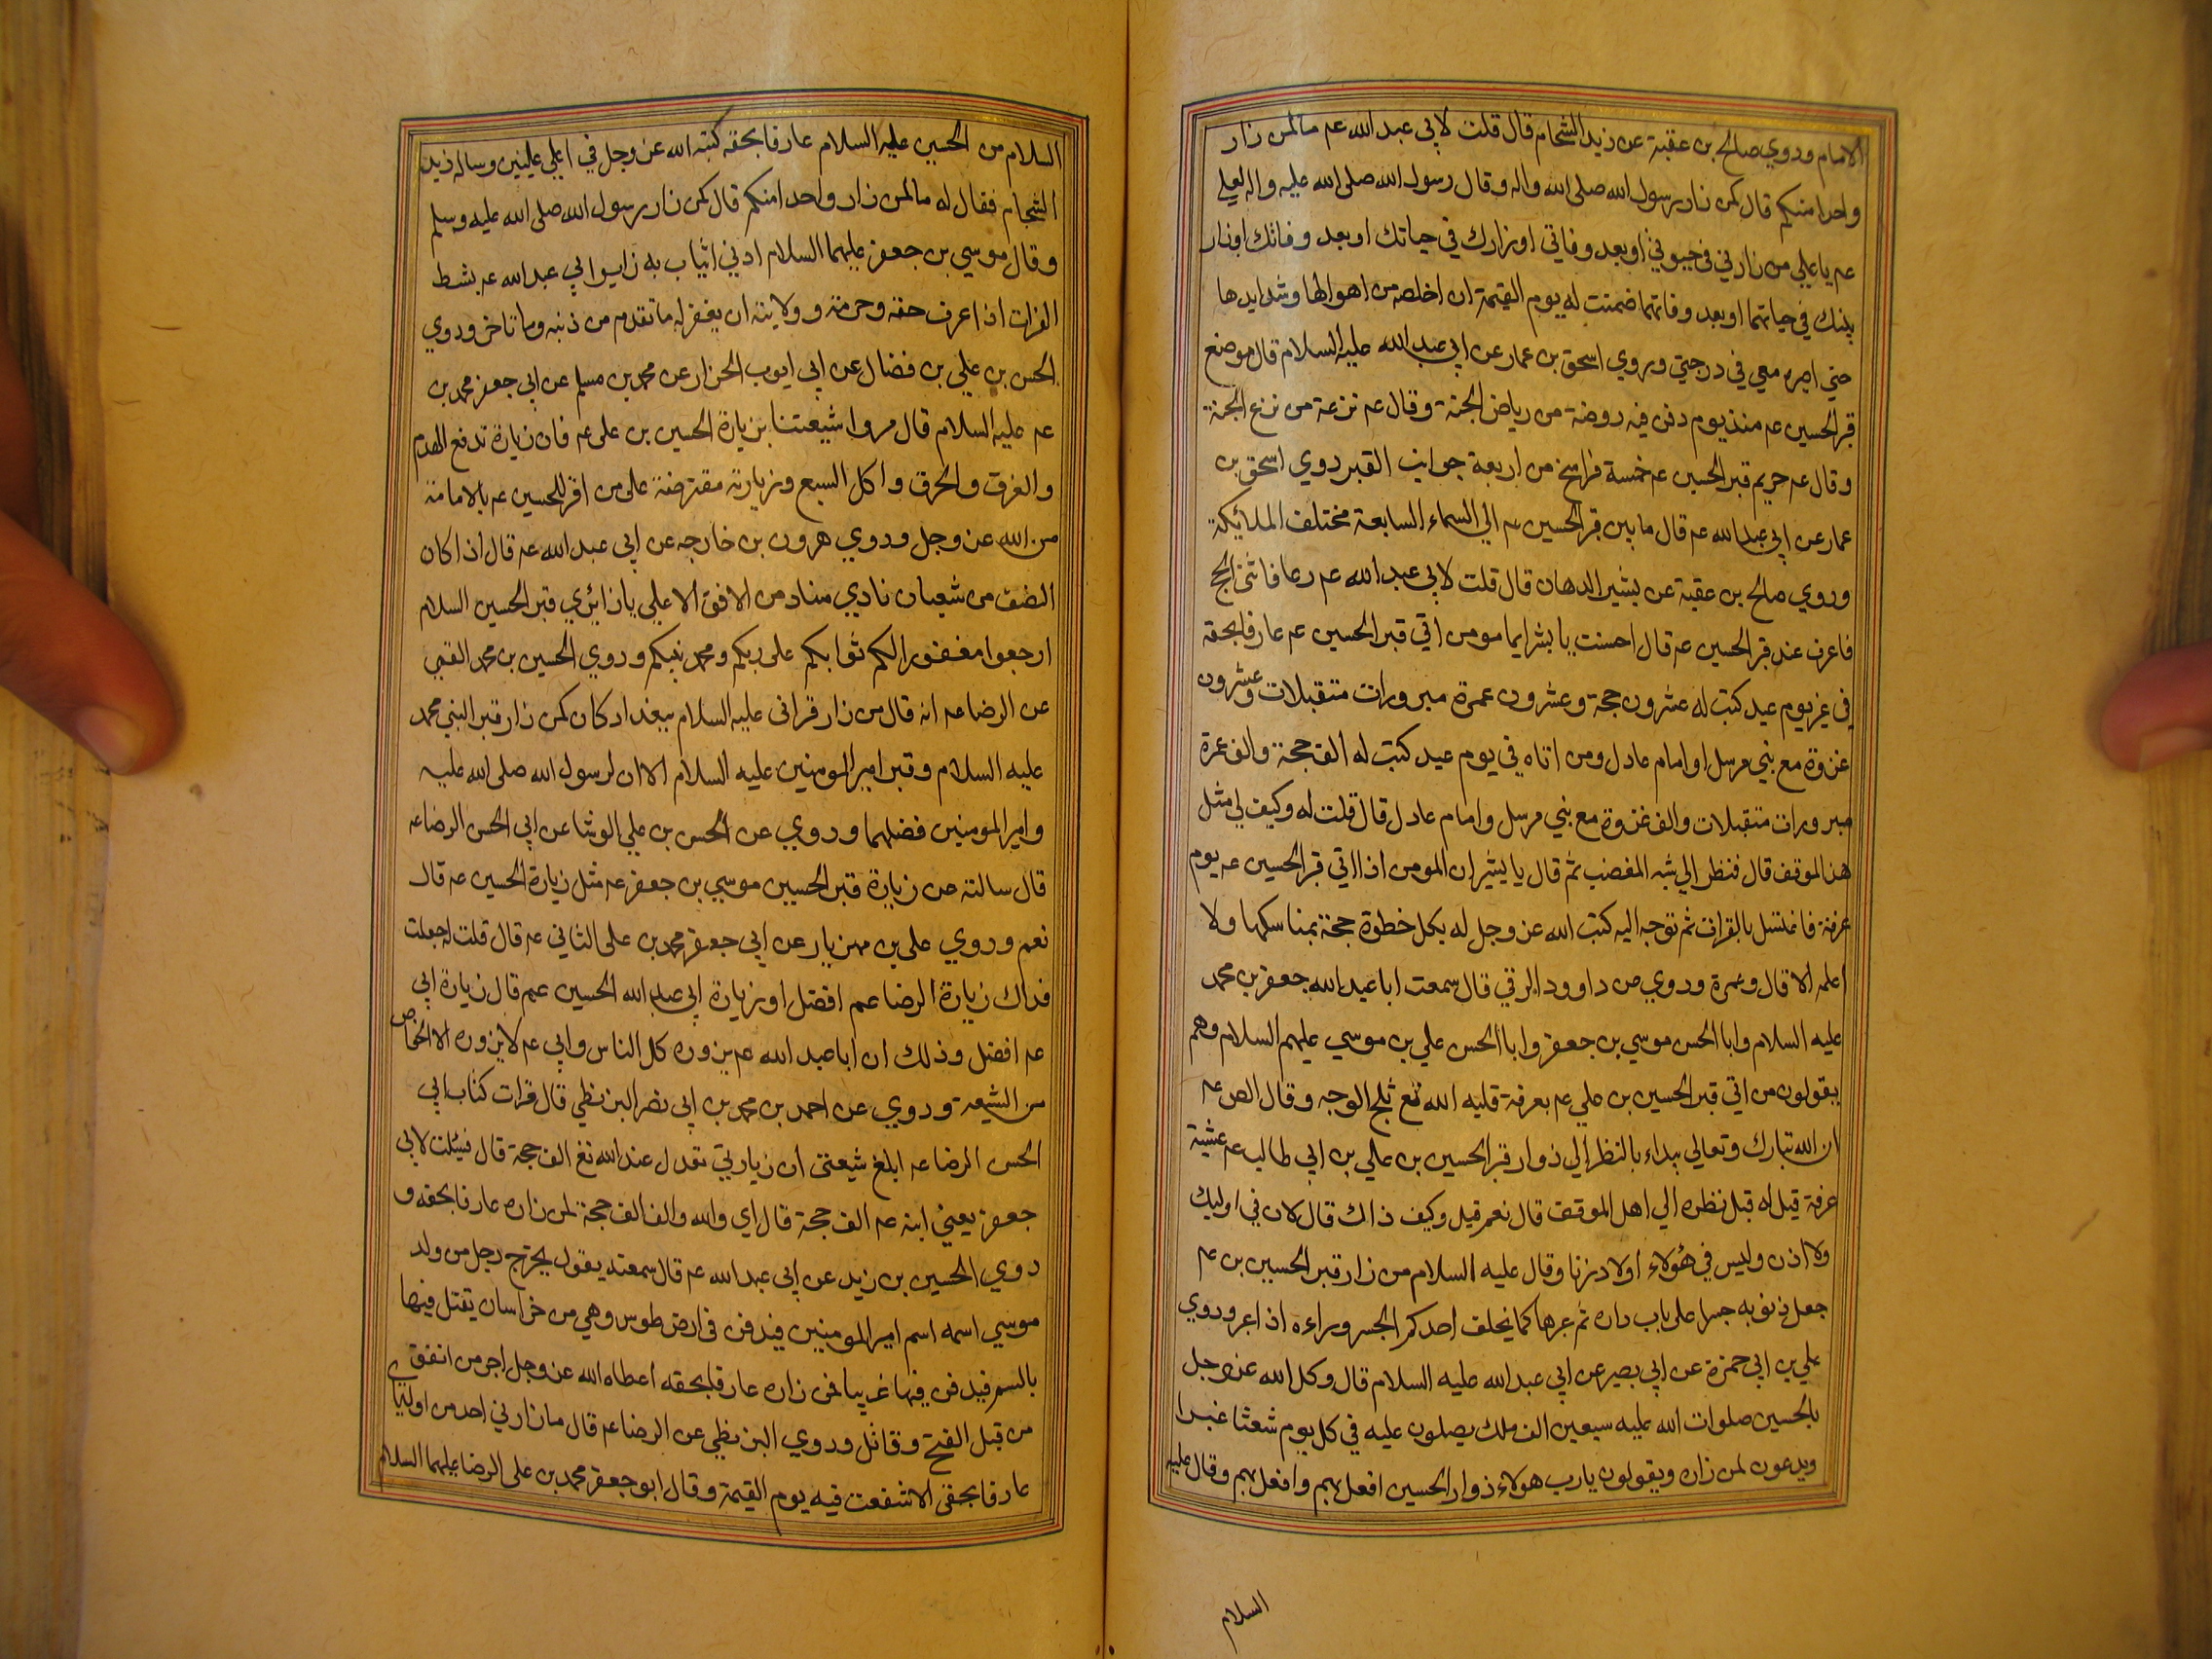 الامام وروي صالح بن عقبة عن زيد الشحام قال قلت لابي عبد الله عم مالمن زار
واحدا منكم قال كمن زار رسول الله صلى الله واله وقال رسول الله صلى الله عليه واله لعلي
عم يا علي من زارني في حيوتي او بعد وفاتي او زارك في حياتك او بعد وفاتك او زار
بنيك في حياتهما او بعد وفاتهما ضمنت له يوم القيمة ان اخلصه من اهوالها وشدايدها
حتي اصيره معي في درجتي وروي اسحق بن عمار عن ابي عبد الله عليه السلام قال موضع
قبر الحسين عم منذ يوم دفن فيه روضة من رياض الجنة وقال عم ترعة من ترع الجنة
وقال عم حريم قبر الحسين عم خمسة فراسخ من اربعة جوانب القبر روي اسحق بن
عمار عن ابي عبد الله عم قال ما بين قبر الحسين عم الي السماء السابعة مختلف الملائكة
وروي صالح بن عقبة عن بشير الدهان قال قلت لابي عبد الله عم ربما فاتني الحج
فاعرف عند قبر الحسين عم قال احسنت يا بشير ايما مومن اتي قبر الحسين عم عارفا بحقه
في غير يوم عيد كتب له عشرون حجة وعشرون عمرة مبرورات متقبلات وعشرون
غزوة مع نبي مرسل او امام عادل ومن اتاه في يوم عيد كتب له الف حجة والف عمرة
مبرورات متقبلات والف غزوة مع نبي مرسل وامام عادل قال قلت له وكيف لي مثل
هذا الموقف قال فنظر الي شبه المغضب ثم قال يا بشير ان المومن اذا اتي قبر الحسين عم يوم
عرفة فاغتسل بالفرات ثم توجه اليه كتب الله عز وجل له بكل خطوة حجة بمناسكها ولا
اعلمه الا قال وعمرة وروي عن داوود الرقي قال سمعت ابا عبد الله جعفر بن محمد
عليه السلام وابا الحسن موسي بن جعفر وابا الحسن علي بن موسي عليهم السلام وهم
يقولون من اتي قبر الحسين بن علي عم بعرفة قلبه الله تع ثلج الوجه وقال الص عم
ان الله تبارك وتعالي يبداء بالنظر الي زوار قبر الحسين بن علي بن ابي طالب عم عشية
عرفة قيل له قبل نظره الي اهل الموقف قال نعم قيل وكيف ذاك قال لان في اوليك
ولا اذن وليس في هؤلاء اولاد زنا وقال عليه السلام من زار قبر الحسين بن عم
جعل ذنوبه جسرا على باب داره ثم عبرها كما يخلف احدكم الجسر وراءه اذا عبر وروي
علي بن ابي حمزة عن ابي بصير عن ابي عبد الله عليه السلام قال وكل الله عز وجل
بالحسين صلوات الله عليه سبعين الف ملك يصلون عليه في كل يوم شعثا غبرا
ويدعون لمن زاره ويقولون يارب هولاء زوار الحسين افعل بهم وافعل بهم وقال عليه
السلام
السلام من الحسين عليه السلام عارفا بحقه كتبه الله عز وجل في اعلي عليين وساله زيد
الشحام فقال له مالمن زار واحدا منكم قال كمن زار رسول الله صلى الله عليه وسلم
وقال موسي بن جعفر عليهما السلام ادني اثياب به زايرا ابي عبد الله عم بشط
الفرات اذا عرف حقه وحرمته وولايته ان يغفر له ما تقدم من ذنبه وما تاخر وروي
الحسن بن علي بن فضال عن ابي ايوب الخزاز عن محمد بن مسلم عن ابي جعفر محمد بن
عم عليه السلام قال مروا شيعتنا بزيارة الحسين بن على عم فان زيارة تدفع الهدم
والغرق والحرق واكل السبع وزيارته مفترضة على من اقر للحسين عم بالامامة
من الله عز وجل وروي هرون بن خارجه عن ابي عبد الله عم قال اذا كان
النصف من شعبان نادي مناد من الافق الاعلي يا زائري قبر الحسين السلام
ارجعوا مغفورا لكم ثوابكم على ربكم ومحمد نبيكم وروي الحسين بن محمد القمي
عن الرضا عم انه قال من زار قبر ابي عليه السلام ببغداد كان كمن زار قبر النبي محمد
عليه السلام وقبر امير المومنين عليه السلام الا ان لرسول الله صلى الله عليه
وامير المومنين فضلهما وروي عن الحسن بن علي الوشا عن ابي الحسن الرضا عم
قال سالته عن زيارة قبر الحسين موسي بن جعفر عم مثل زيارة الحسين عم قال
نعم وروي على بن مهزيار عن ابي جعفر محمد بن على الثاني عم قال قلت له جعلت
فداك زيارة الرضا عم افضل او زيارة ابي عبد الله الحسين عم قال زيارة ابي
عم افضل وذلك ان ابا عبد الله عم يزوره كل الناس وابي عم لا يزوره الا الخاص
من الشيعة وروي عن احمد بن محمد بن ابي نصر البزنطي قال قرات كتاب ابي
الحسن الرضا عم ابلغ شيعتي ان زيارتي تعدل عند الله تع الف حجة قال فسئلت لابي
جعفر يعني ابنه عم الف حجة قال اي والله والف الف حجة لمن زاره عارفا بحقه و
روي الحسين بن زيد عن ابي عبد الله عم قال سمعته يقول يخرج رجل من ولد
موسي اسمه اسم امير المومنين فيدفن في ارض طوس وهي من خراسان يقتل فيها
بالسم فيدفن فيها غريبا فمن زاره عارفا بحقه اعطاه الله عز وجل اجر من انفق
من قبل الفتح وقاتل وروي البزنطي عن الرضا عم قال ما زارني احد من اوليايي
عارفا بحقي الا شفعت فيه يوم القيمة وقال ابو جعفر محمد بن على الرضا عليهما السلام